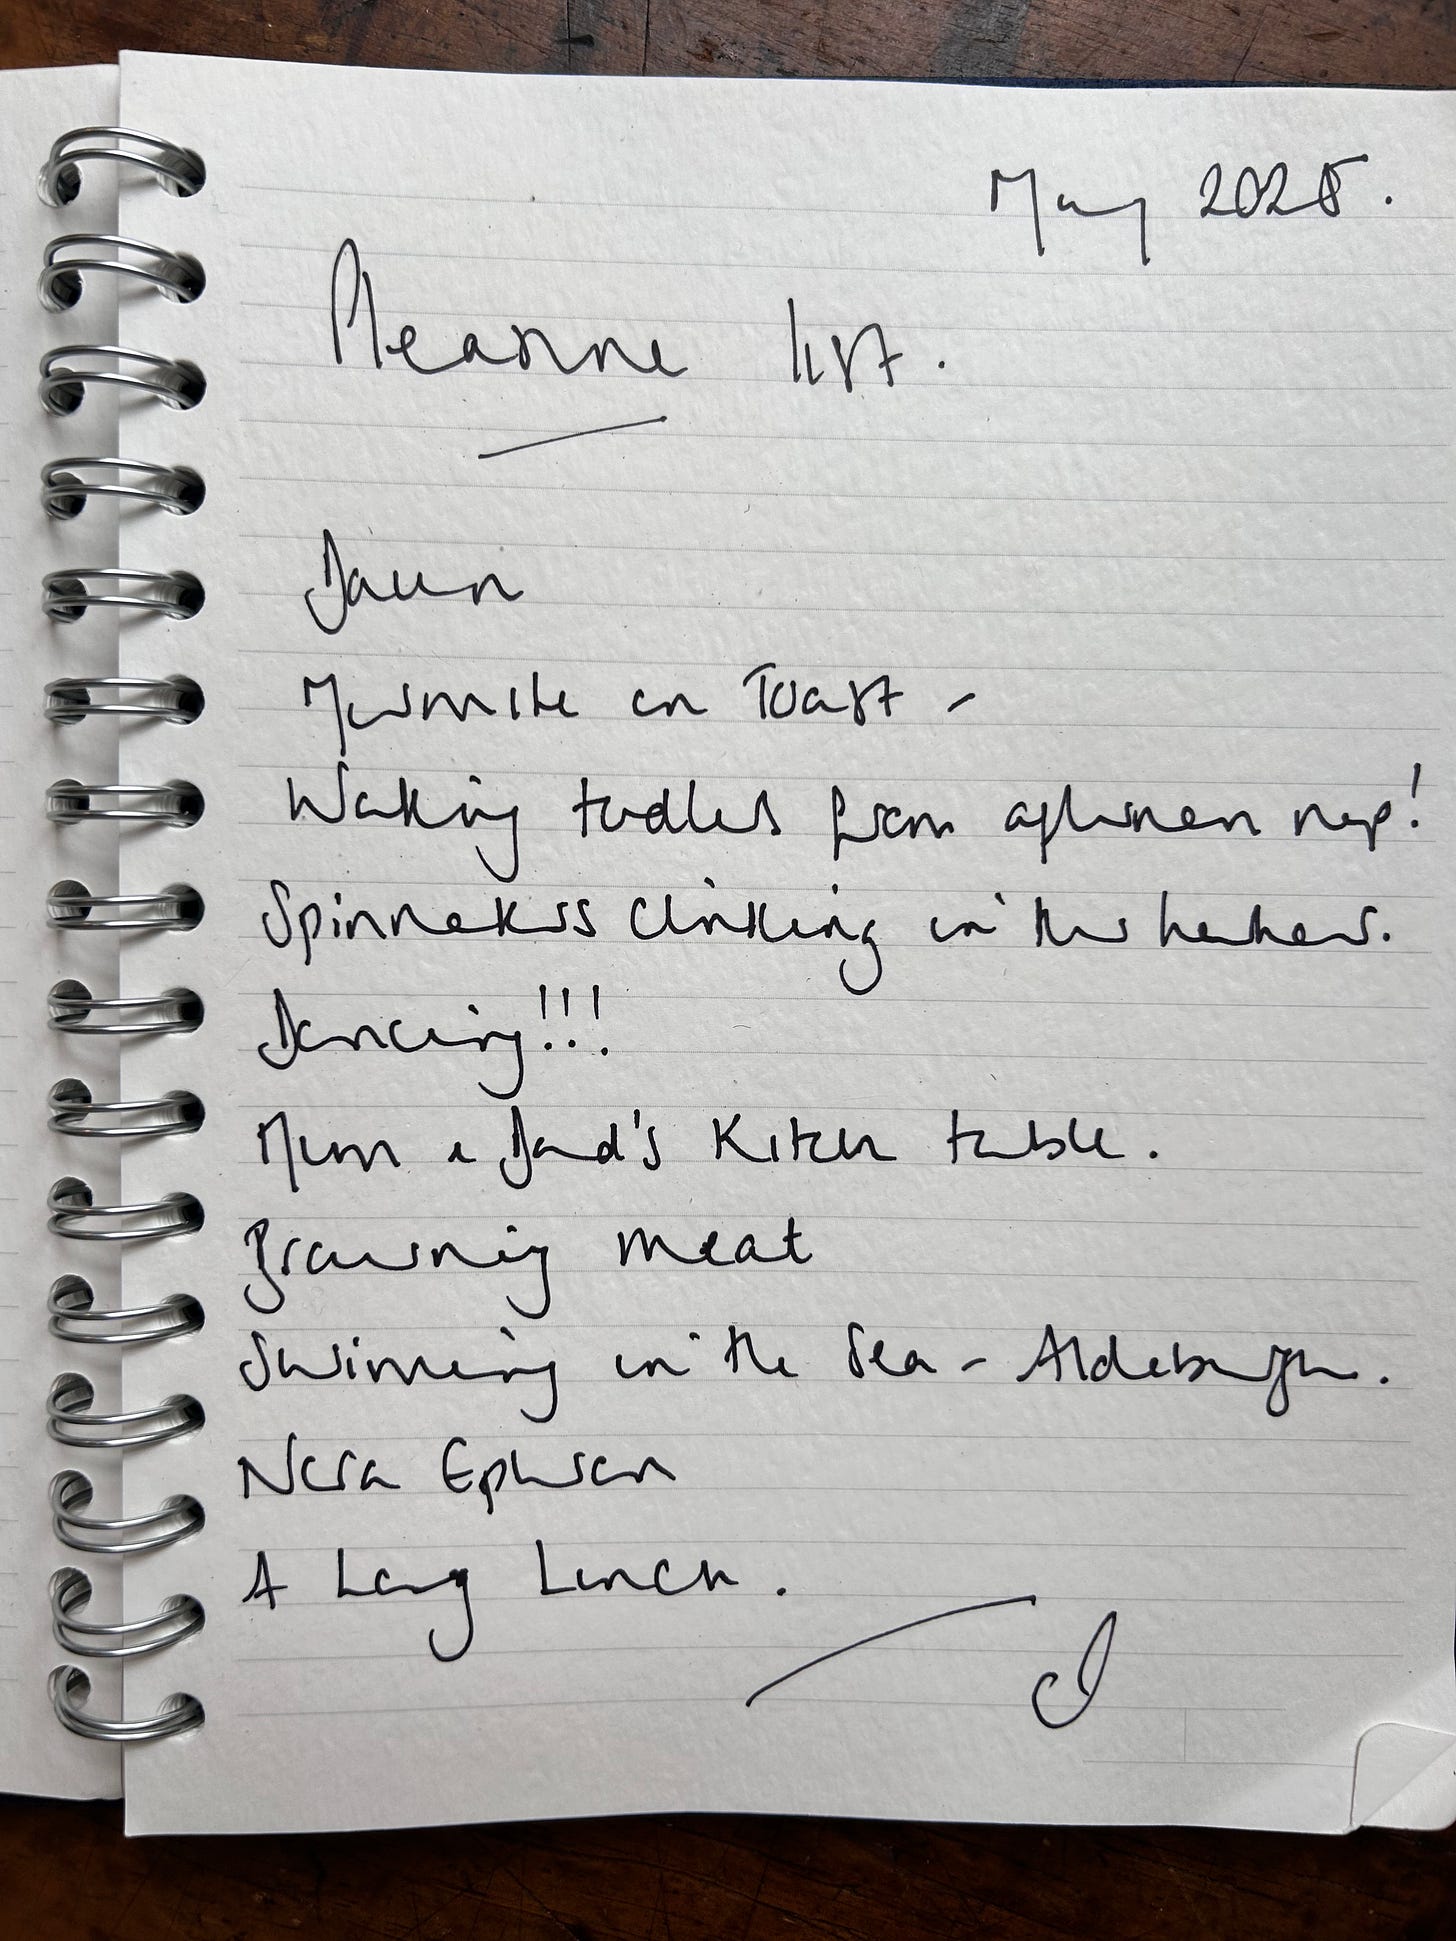 May 2025.
Pleasure list.
Dawn
Marmite on Toast -
Waking toddlers from afternoon nap!
Spinnakers clinking in the harbour.
Dancing!!!
Mum & Dad's Kitchen table.
Browning meat
Swimming in the Sea - Aldeburgh.
Nora Ephron
A Long Lunch.